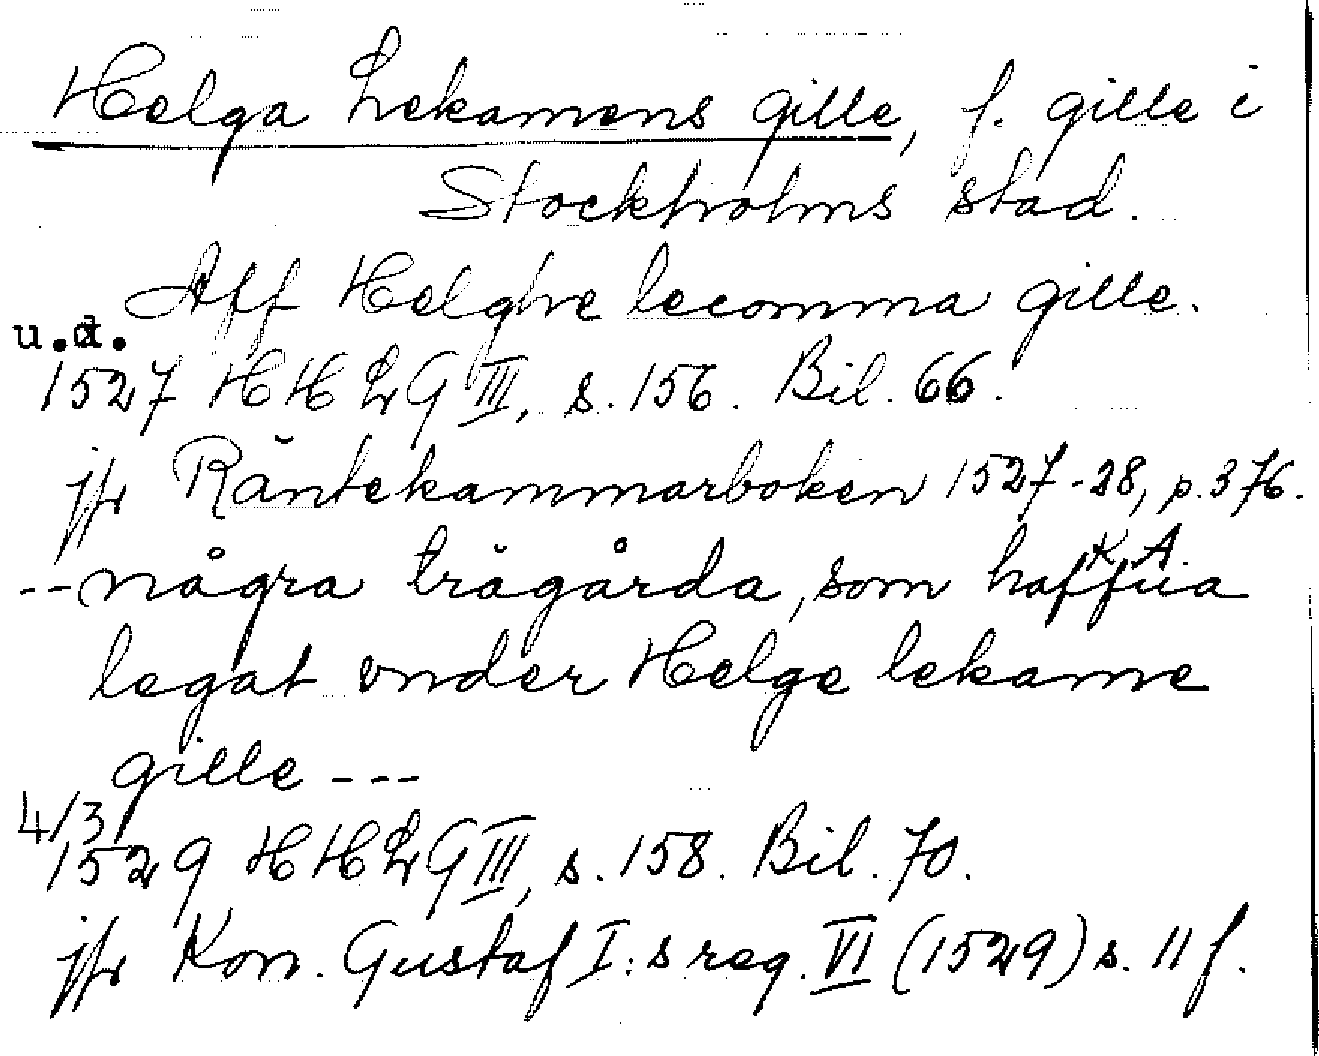 Helga Lekamens gille, f. gille i
Stockholms stad.
Aff Helghe lecomma gille.
u.d.
1527 HHLG III, s. 156. Bil. 66.
jfr Räntekammarboken 1527-28, p. 376.
K.A.
--några trägårda, som haffua
legat vnder Helge lekame
gille ---
4/3
1529 HHLG III, s. 158. Bil. 70.
jfr Kon. Gustaf I:s reg. VI (1529) s. 11 f.